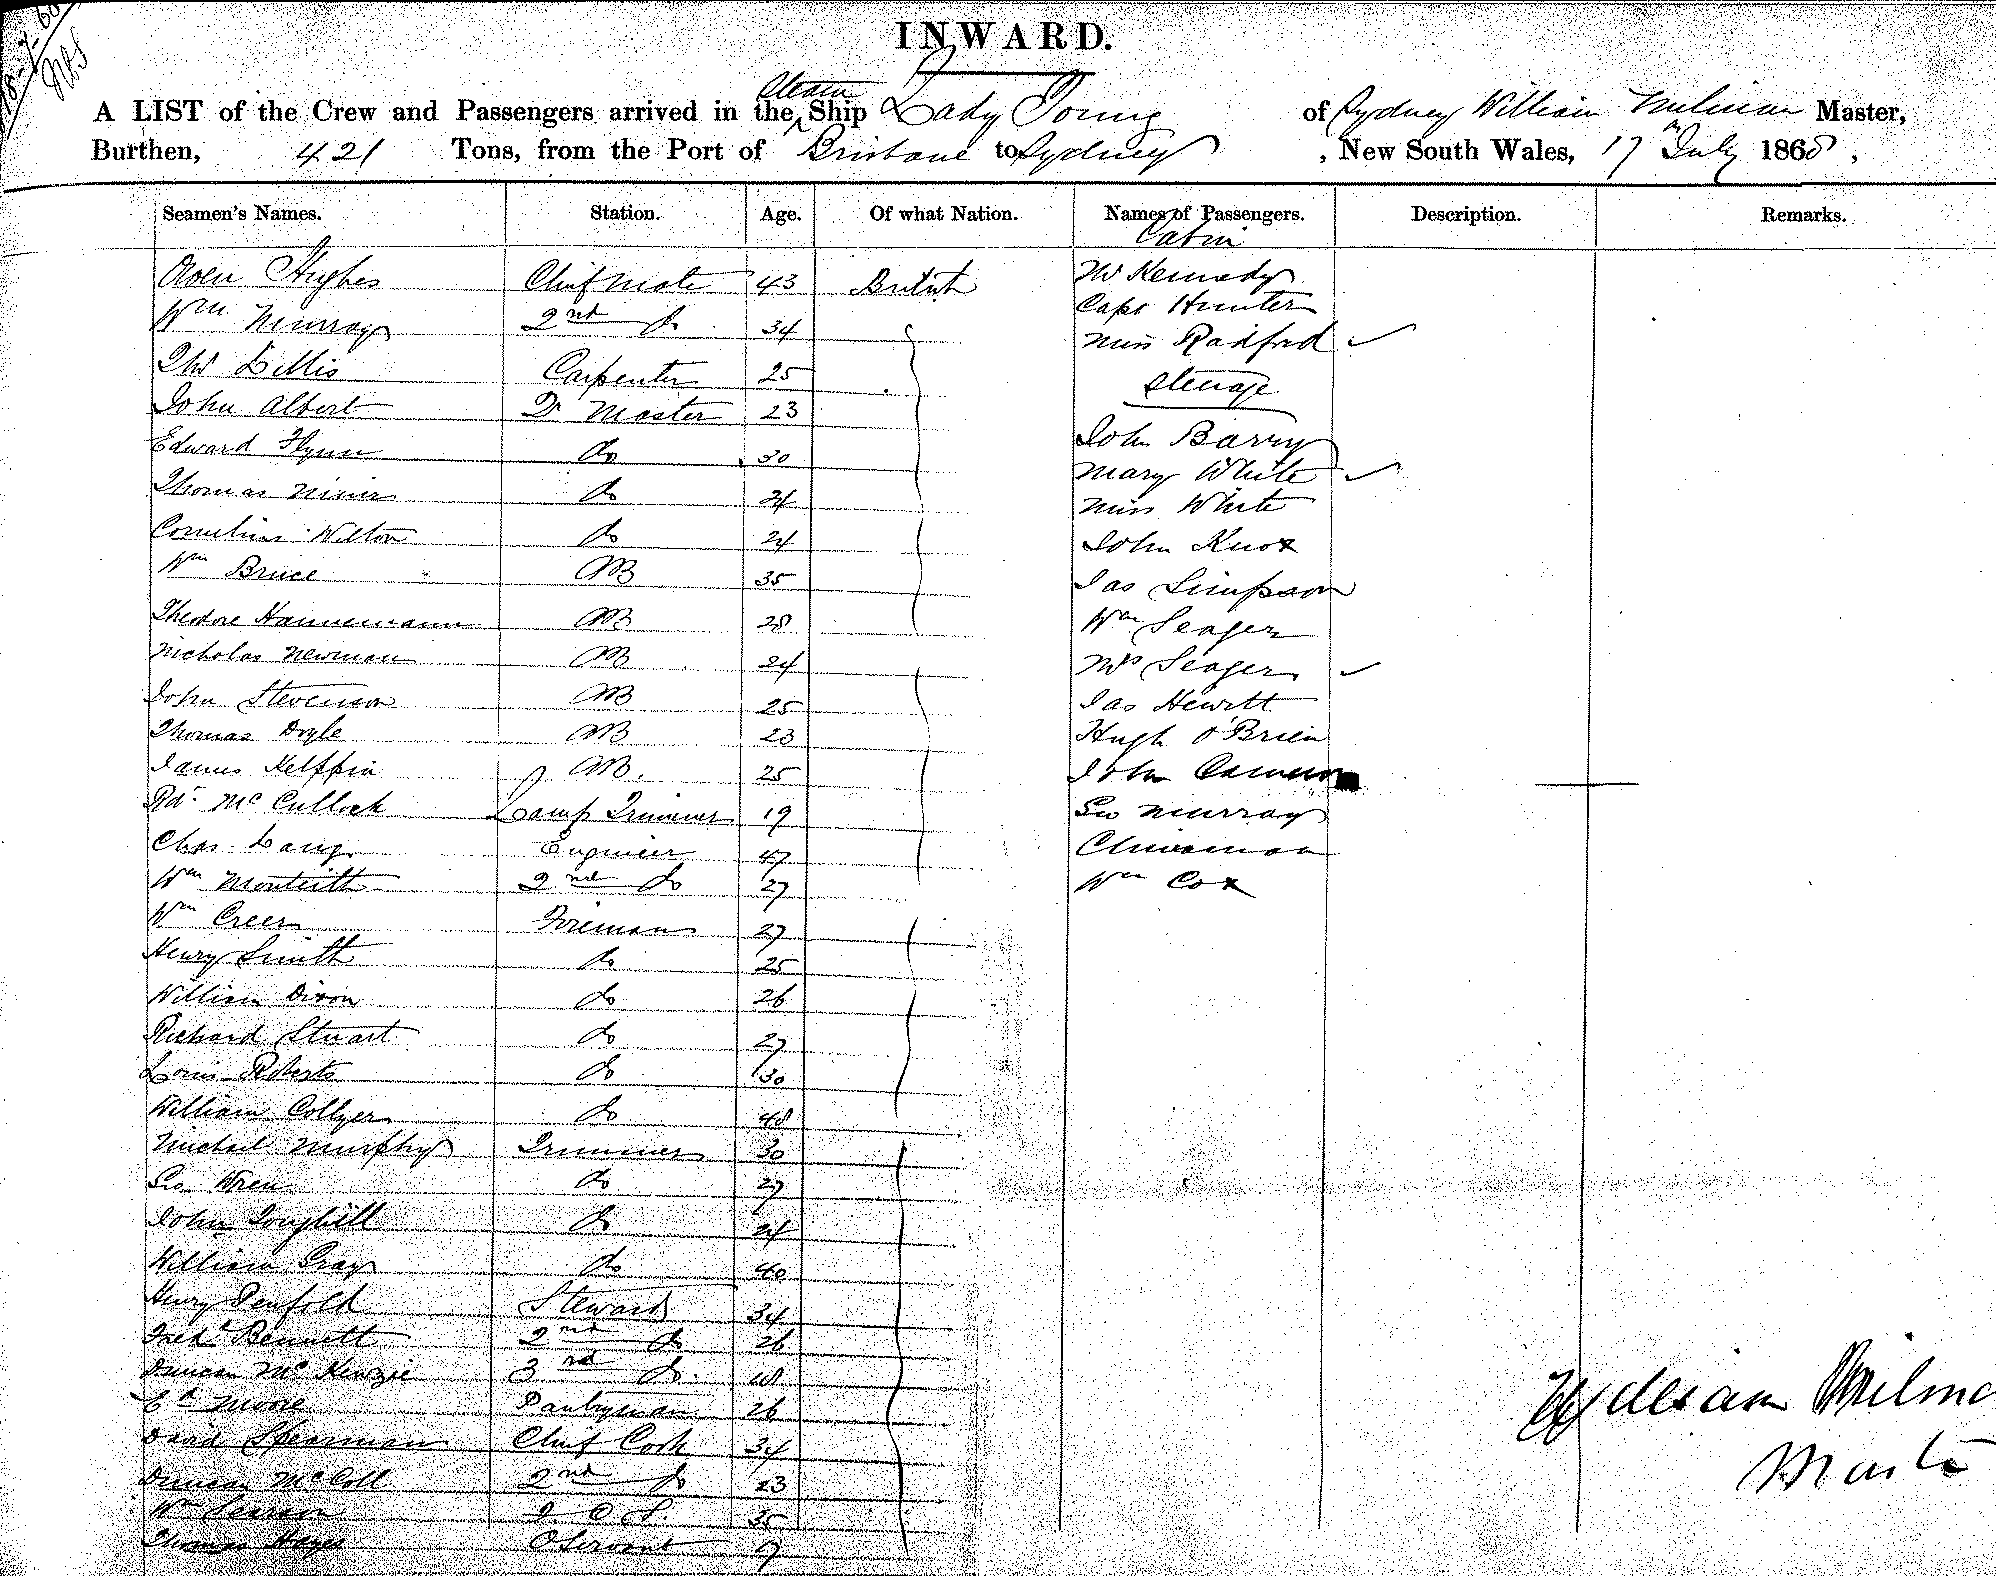 INWARD.
A LIST of the Crew and Passengers arrived in the Steam Ship Lady Young of Sydney William Milman Master,
Burthen, 421 Tons, from the Port of Brisbane to Sydney, New South Wales, 17th July 1868,
Seamen's Names. Station. Age. Of what Nation. Names of Passengers. Description. Remarks.
Cabin
Owen Hughes Chief Mate 43 British Mr Kennedy
Wm Murray 2nd do 34 Capt Hunter
Carpenter 25 Miss Radford
Steerage
John Albert Qr Master 23
Edward Flynn do 30 John Barry
Thomas do 24 Mary White
Cornelius Wilton do 24 Miss White
Wm Bruce AB 35 John Knox
Theodore Hannemann AB 28 Jas Simpson
Nicholas Newman AB 24 Wm Seager
John Stevenson AB 25 Mrs Seager
Thomas Doyle AB 23 Jas Hewitt
James AB. 25 Hugh O'Brien
Rdt McCulloch Lamp Trimmer 19 John Cameron
Chas Lang Engineer 47 Geo Murray
Wm Monteith 2nd do 27 Chinaman
Wm Creer Fireman 27 Wm Cox
Henry Smith do 25
William Dixon do 26
Richard Stuart do 27
Louis Roberts do 30
William Collyer do 48
Michael Murphy Trimmer 30
Geo Wren do 27
John do 24
William Gray do 40
Henry Penfold Steward 34
Fredk Bennett 2nd do 26
Duncan McKenzie 3rd do. 18
Moore Pantryman 26
David Spearman Chief Cook 34
Duncan McColl 2nd do 23
Wm Pearson 35
Thomas Hayes Servant
William Milma
Master